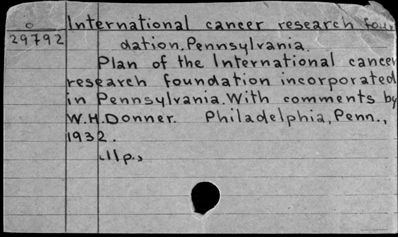 o International cancer research foun
29792 dation, Pennsylvania.
Plan of the International cancer
research foundation incorporated
in Pennsylvania. With comments by
W.H. Donner. Philadelphia, Penn.,
1932.
11p.